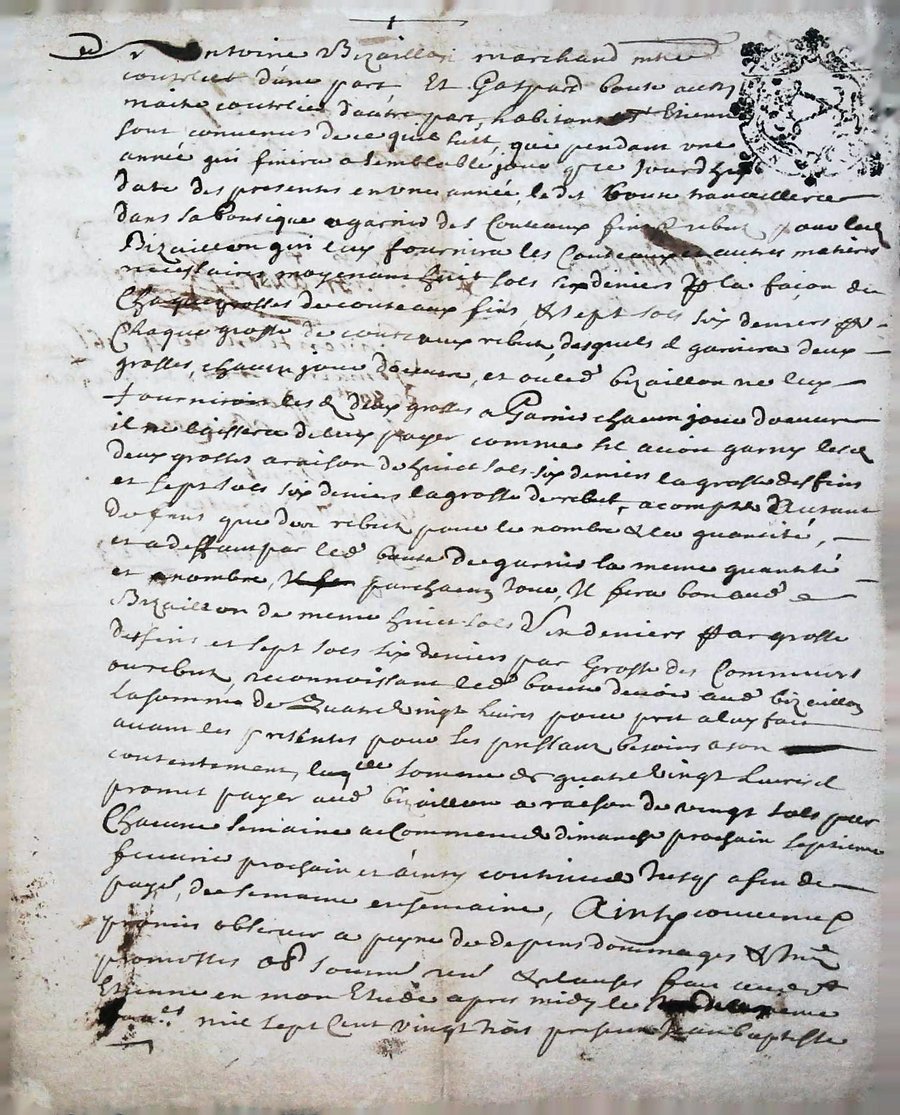 Sr Antoine Bizaillon marchand mtre
coutelier d'une part Et Gaspard boute aussy
maitre coutelier dautre part, habitans St Etienne
sont convenus de ce que suit, que pendant une
année qui finira a semblable jour que Jourdhuy
date des presentes en une année, ledit boute travaillera
dans sa boutique a garnir des Couteaux fins & rebut pour led
Bizaillon qui luy fournira les Couteaux & autres matieres
necessaires moyenant huit sols six deniers p la façon de
Chaque grosses de couteaux fins, & sept sols six deniers pr
Chaque grosse de couteaux rebut, desquels il garnira deux
grosses, chacun jour doeuvre, et ou led bizaillon ne luy
fourniroit les d deux grosses a Garnir chacun jour doeuvre
il ne laissera de luy payer comme sil avoit garny lesd
deux grosses a raison de huict sols six deniers la grosse des fins
et sept sols six deniers la grosse de rebut, a compte d'autant
de fins que de rebut pour le nombre & la quantité,
et a deffaut par led boute de garnir la meme quantité
et nombre, par chacun Jour, Il fera bon aud
Bizaillon de meme huict sols six deniers par grosse
des fins et sept sols six deniers par Grosse des Communs
ou rebut, reconnoissant led boute devoir aud bizaillon
la somme de Quatre vingt livres pour pret a luy fait
avant les presentes pour ses pressant besoins a son
contentement, laquelle somme de quatre vingt Livres il
promet payer aud bizaillon a raison de vingt sols par
Chacune Semaine a Commencer dimanche prochain septieme
fevrier prochain et ainsy continuer Jusqs a fin de
paye, de semaine en semaine, Ainsy convenu
promis observer a peyne de depens dommages & Int
promettes obl soumis renc & clauses fait aud St
Etienne en mon Etude apres midy le
mil sept Cent vingt trois presens Jean baptiste